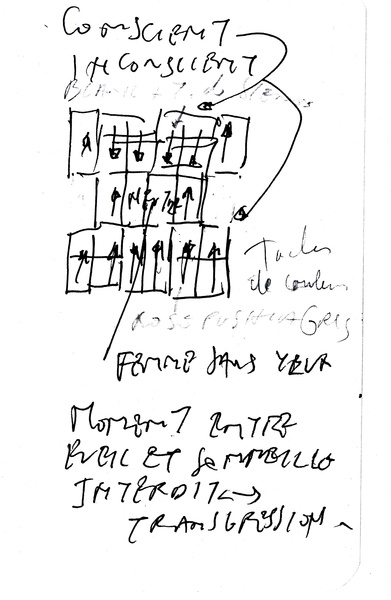 CONSCIENT
INCONSCIENT
Taches
de couleur
ROSE FUSHIA GRIS
FEMME SANS YEUX
MOMENT ENTRE
EVEIL ET SOMMEILLE
INTERDIT <->
TRANSGRESSION